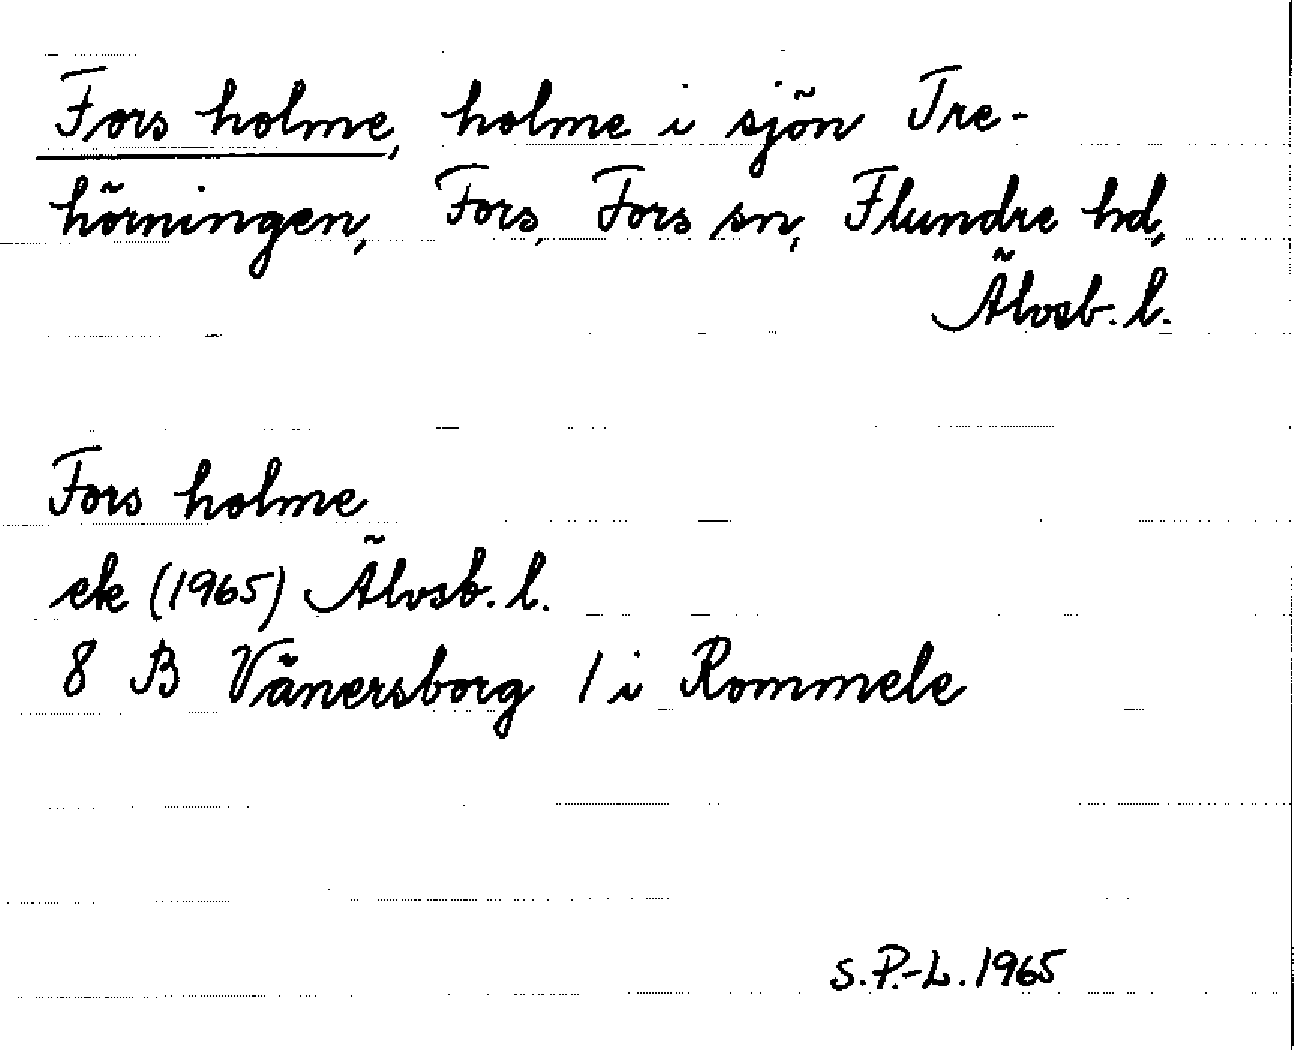 Fors holme, holme i sjön Tre-
hörningen, Fors, Fors sn, Flundre hd,
Älvsb. l.
Fors holme
ek (1965) Älvsb. l.
8 B Vänersborg 1 i Rommele
S. P.-L. 1965